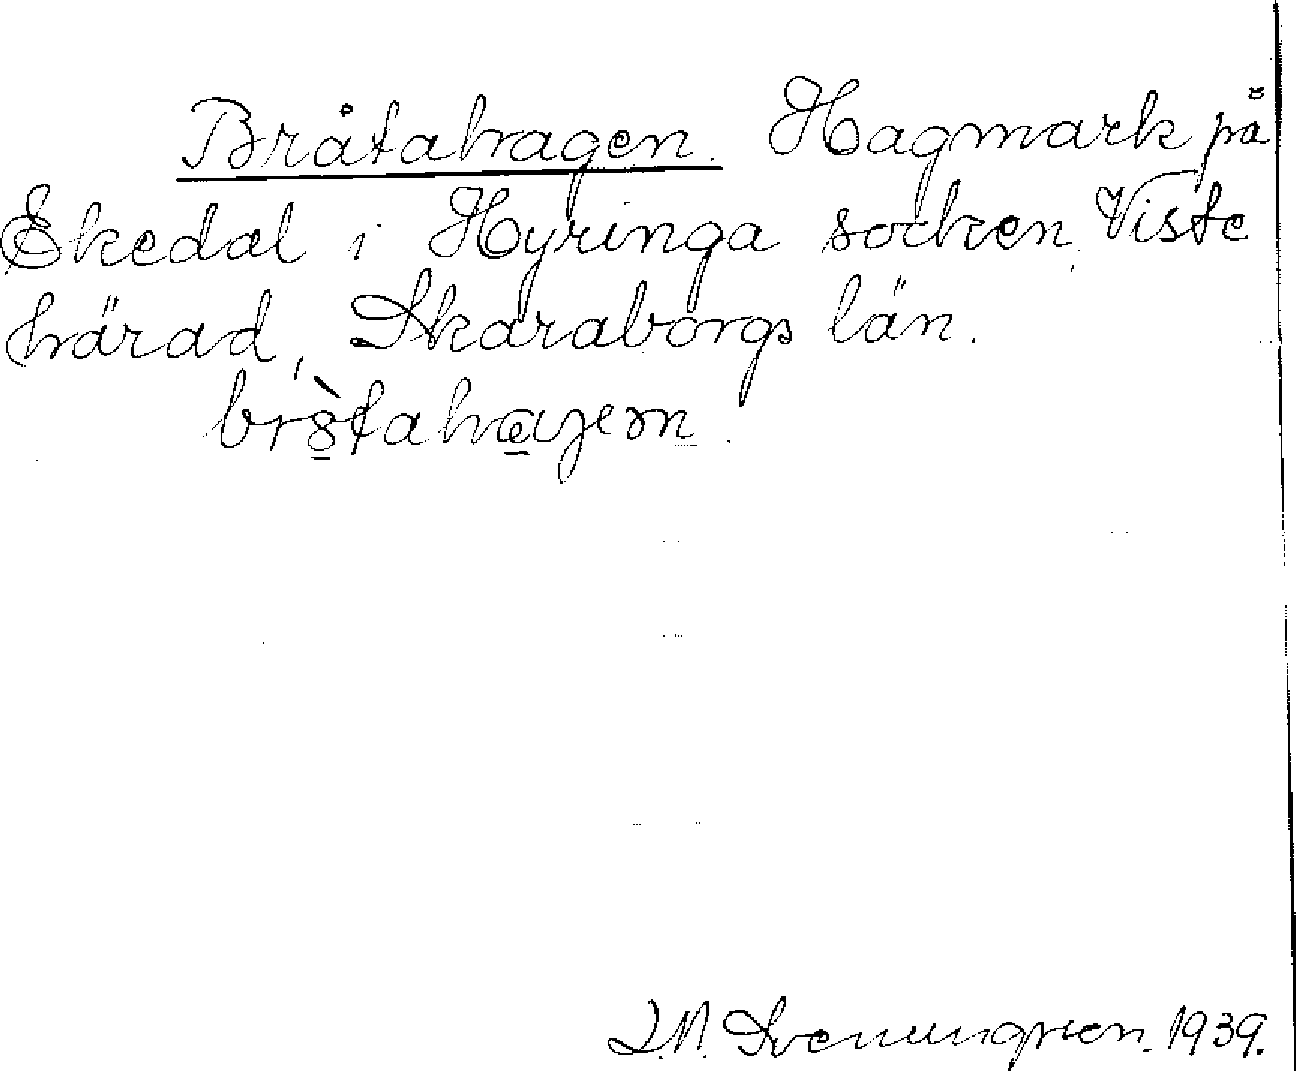 Bråtahagen. Hagmark på
Ekedal i Hyringa socken, Viste
härad, Skaraborgs län.
J.N. Svenungsson. 1939.